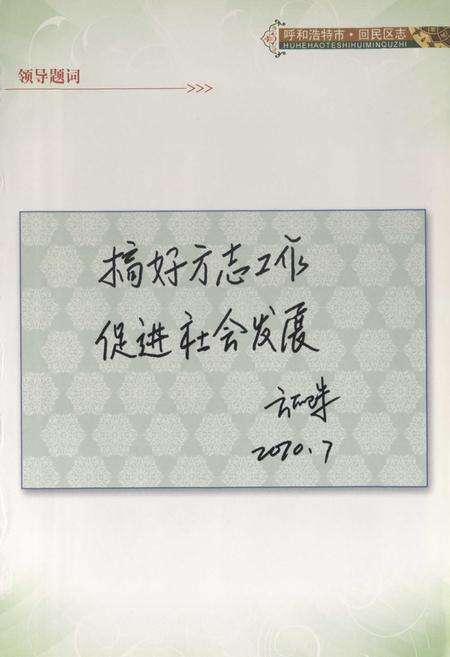 呼和浩特市·回民区志
HUHEHAOTESHIHUIMINQUZHI
领导题词
>>>
搞好方志工作
促进社会发展
2010.7